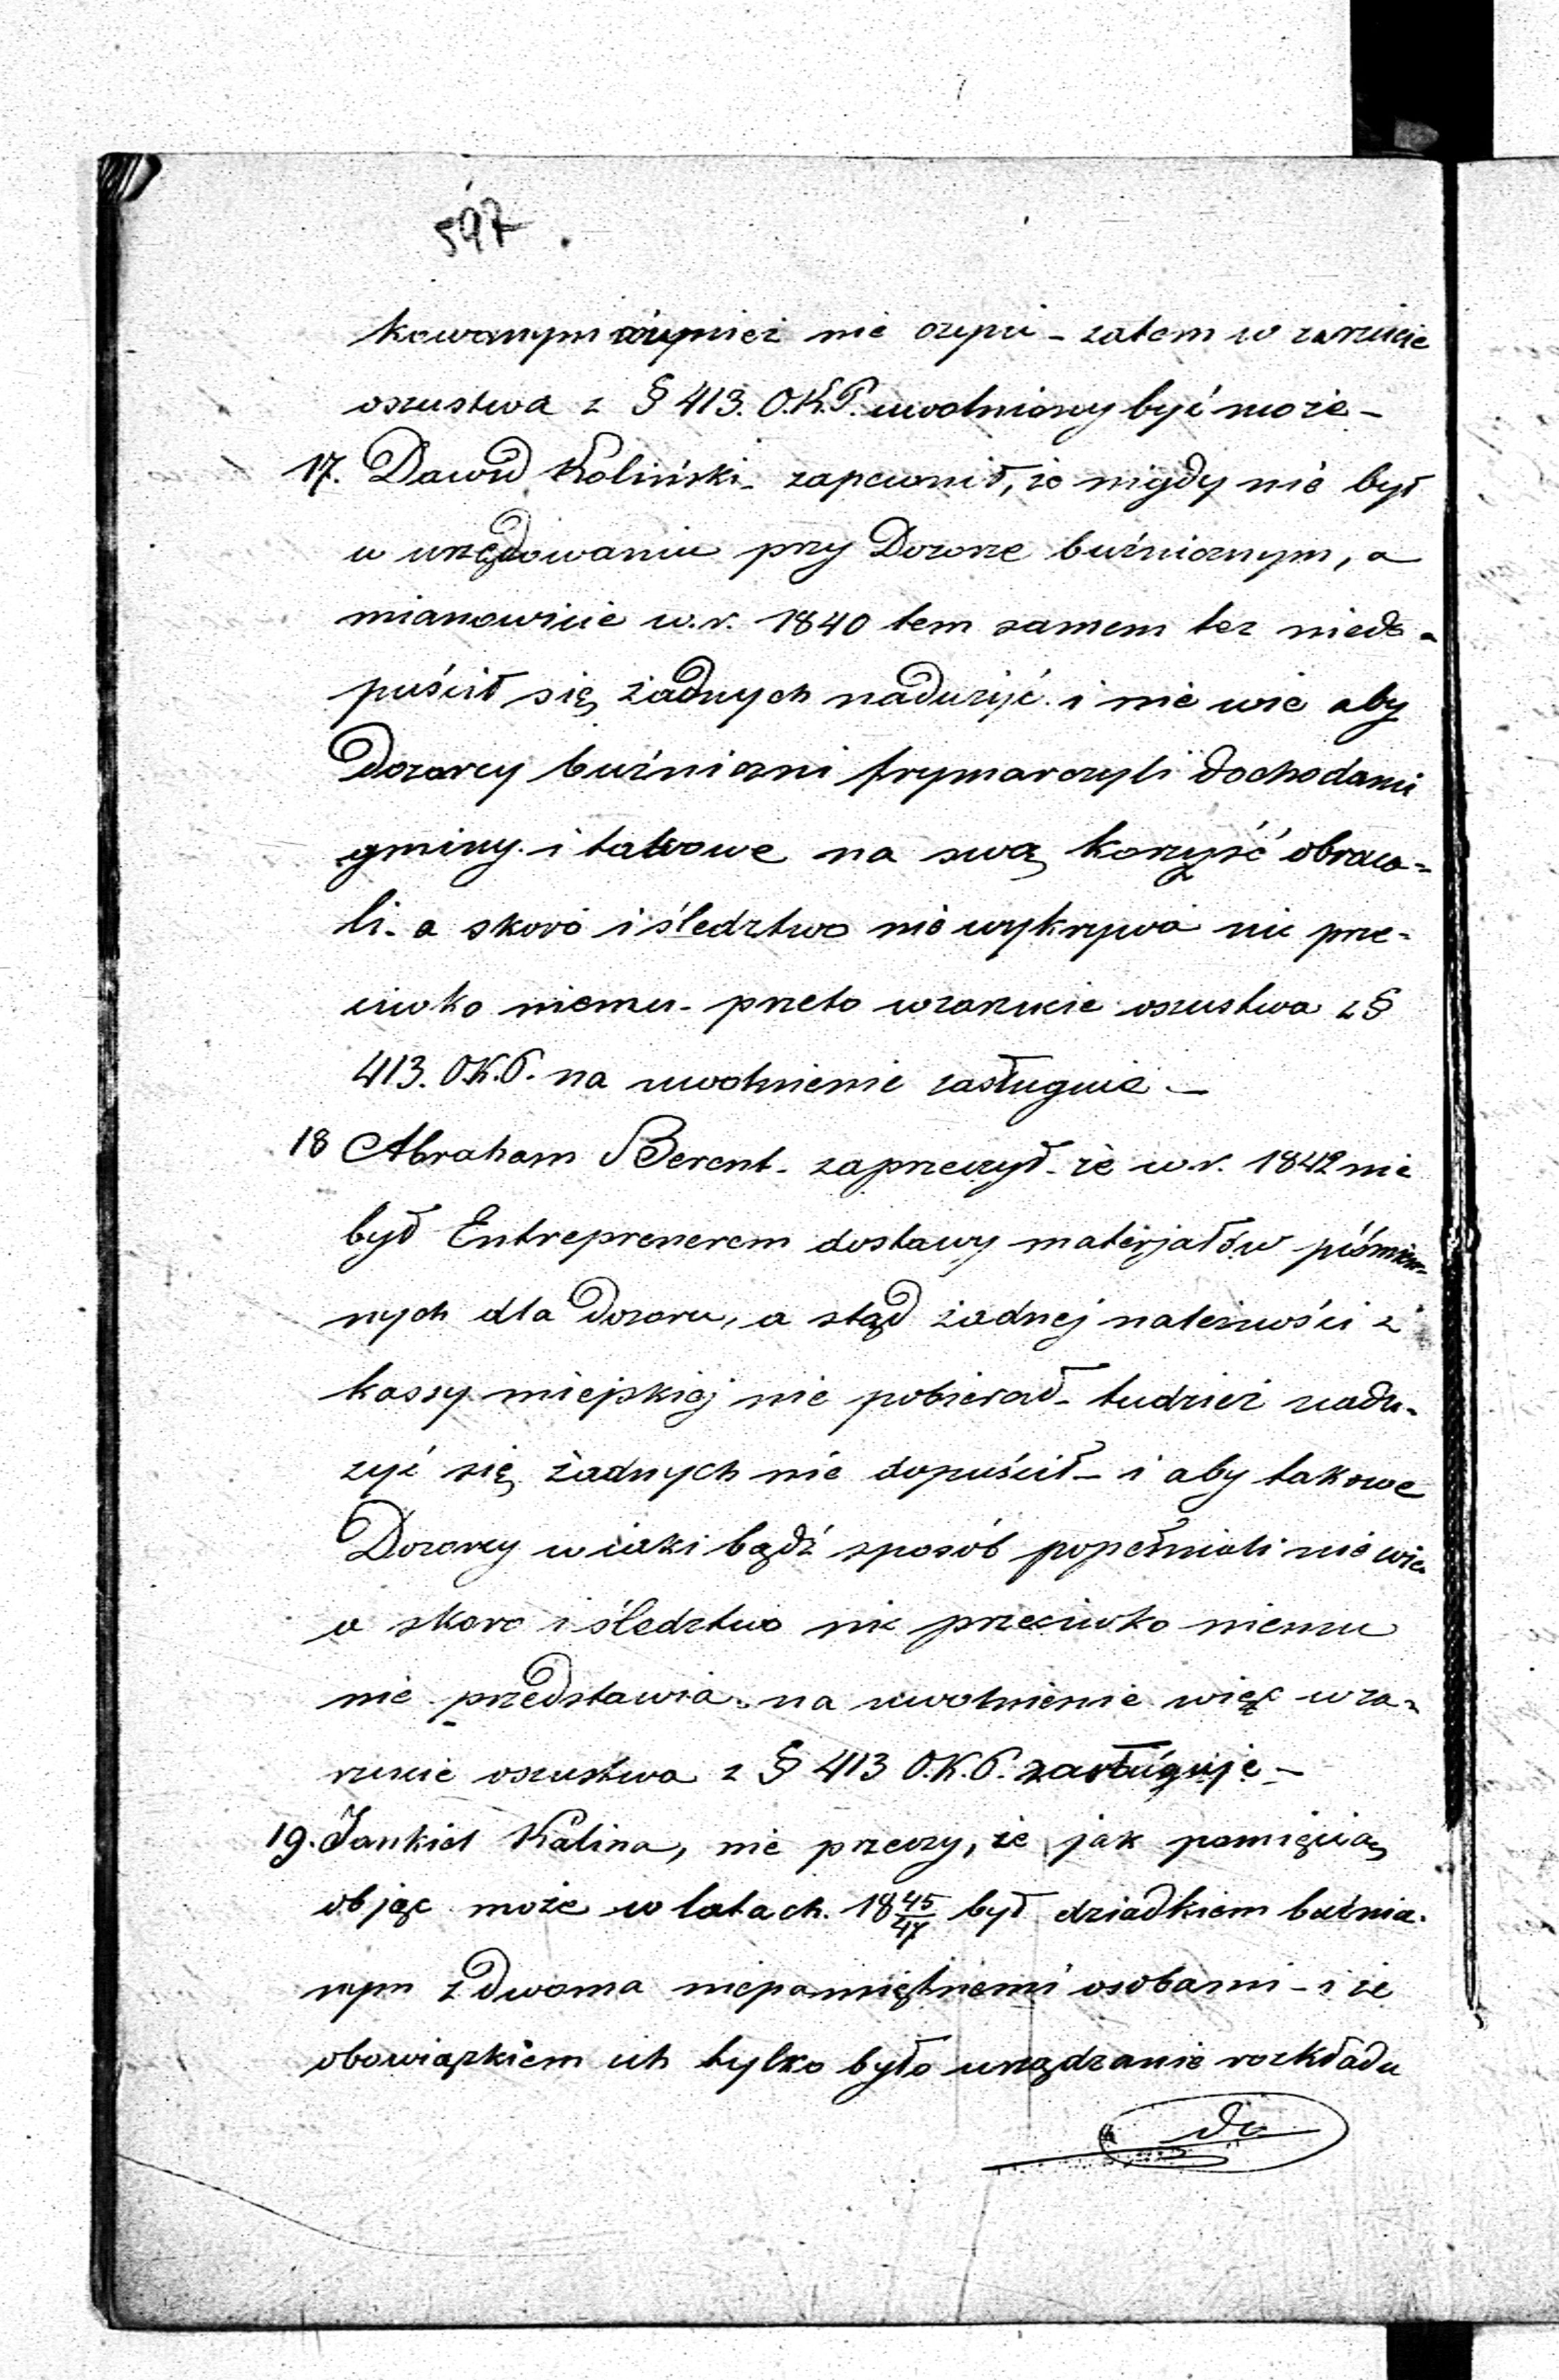 597
kowanym również nie czyni - zatem w zarzucie
oszustwa z § 413. O.K.P. uwolniony być może -
17. Dawid Koliński - zapewnił, że nigdy nie był
w urzędowaniu przy Dozorze buźnicznym, a
mianowicie w.r. 1840 tem samem też niedo-
puścił się żadnych nadużyć i nie wie aby
Dozorcy buźniczni frymarczyli dochodami
gminy i takowe na swą korzyść obraca-
li - a skoro i śledztwo nie wykrywa nic prze-
ciwko niemu - przeto wzarzucie oszustwa z §
413. O.K.P. na uwolnienie zasługuje -
18 Abraham Berent - zaprzeczył - że w.r. 1842 nie
był Entreprenerem dostawy materjałów piśmien-
nych dla Dozoru, a stąd żadnej należności z
kassy miejskiej nie pobierał - tudzież nadu-
żyć się żadnych nie dopuścił - i aby takowe
Dozorcy w iaki bądź sposób popełniali nie wie
a skoro i śledztwo nic przeciwko niemu
nie przedstawia - na uwolnienie więc wza-
rzucie oszustwa z § 413 O.K.P. zasługuje -
19. Jankiel Kalina, nie przeczy, że jak pamięcią
objąć może w latach 18 45/47 był dziadkiem buźnia-
nym z dwoma niepamiętnemi osobami - i że
obowiązkiem ich tylko było urządzanie rozkładu